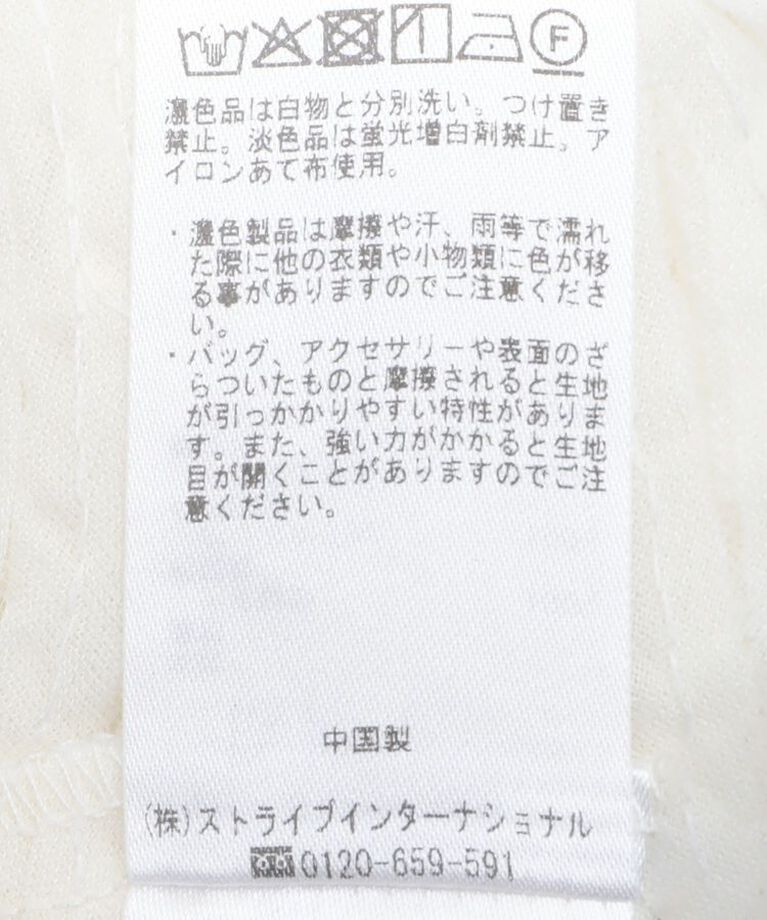 濃色品は白物と分別洗い。つけ置き
禁止。淡色品は蛍光増白剤禁止。ア
イロンあて布使用。
・濃色製品は摩擦や汗、雨等で濡れ
た際に他の衣類や小物類に色が移
る事がありますのでご注意くださ
い。
・バッグ、アクセサリーや表面のざ
らついたものと摩擦されると生地
が引っかかりやすい特性がありま
す。また、強い力がかかると生地
目が開くことがありますのでご注
意ください。
中国製
(株)ストライプインターナショナル
0120-659-591